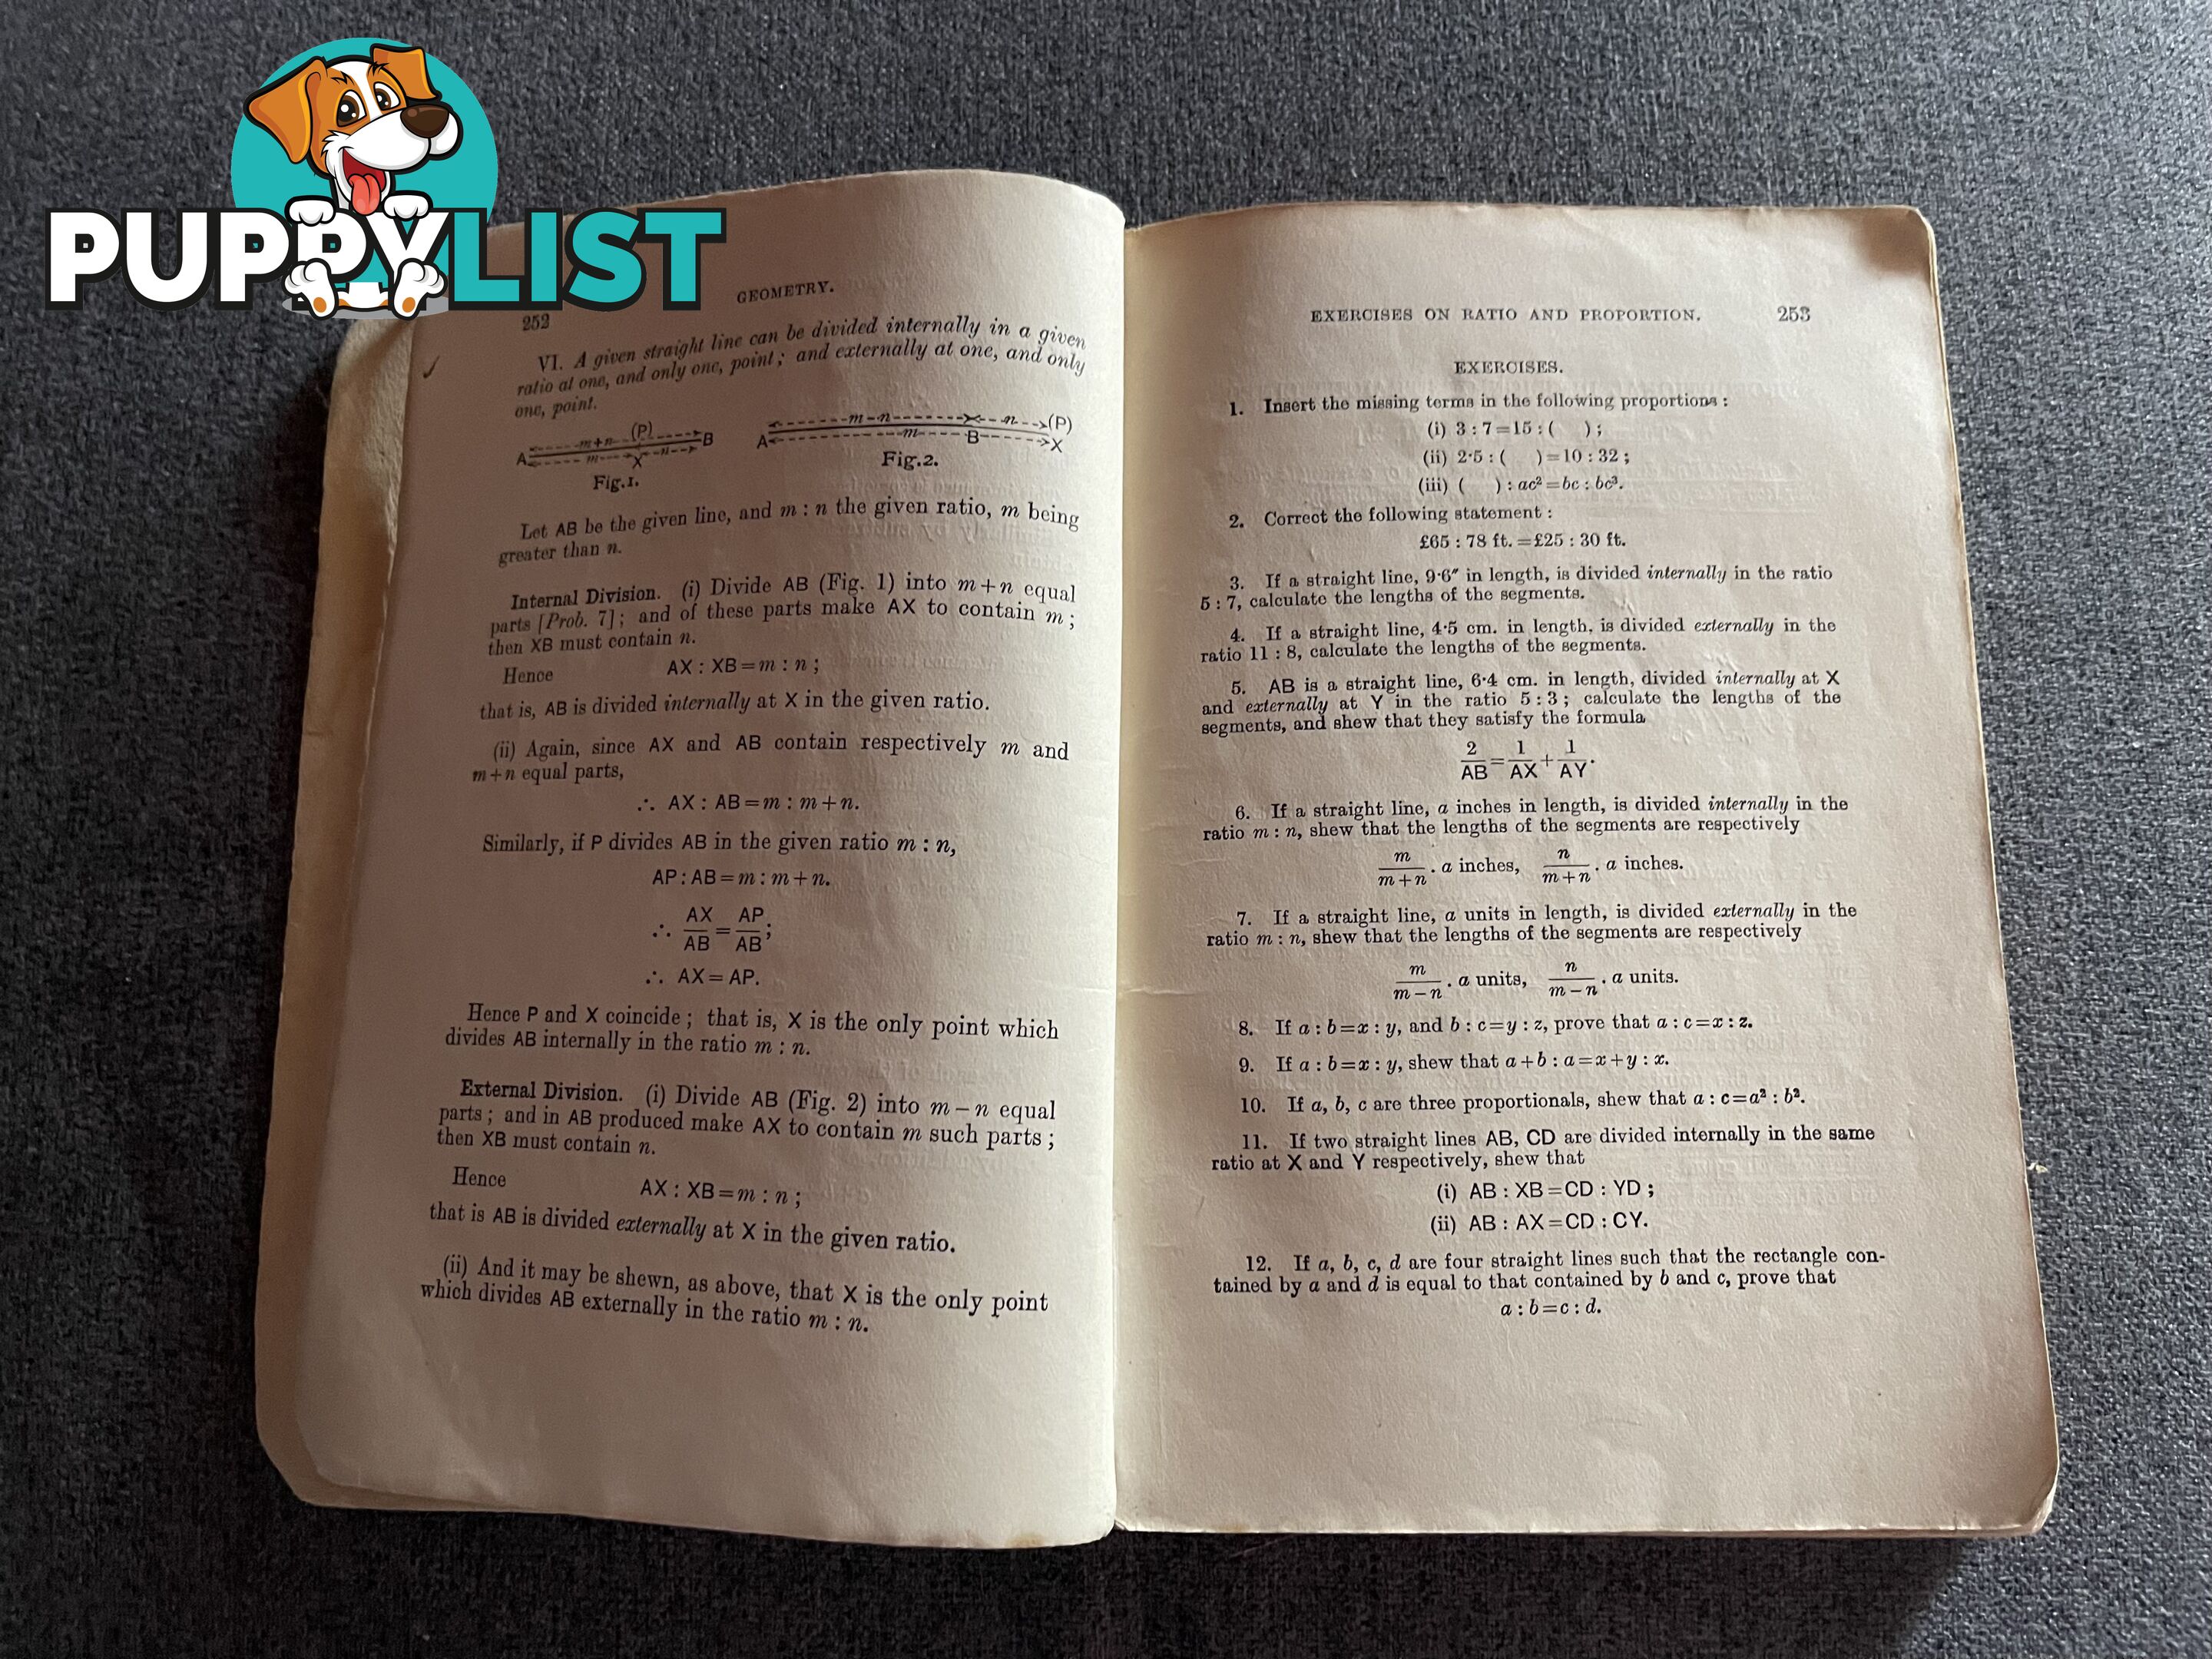 PUPPYLIST
252
GEOMETRY.
VI. A given straight line can be divided internally in a given
ratio at one, and only one, point; and externally at one, and only
one, point.
(P)
m+n
A
B
m
X
n
Fig.1.
m-n
n
(P)
A
m
B
X
Fig.2.
Let AB be the given line, and m : n the given ratio, m being
greater than n.
Internal Division. (i) Divide AB (Fig. 1) into m+n equal
parts [Prob. 7]; and of these parts make AX to contain m;
then XB must contain n.
Hence AX : XB=m : n;
that is, AB is divided internally at X in the given ratio.
(ii) Again, since AX and AB contain respectively m and
m+n equal parts,
∴ AX : AB=m : m+n.
Similarly, if P divides AB in the given ratio m : n,
AP : AB=m : m+n.
∴ AX/AB = AP/AB;
∴ AX=AP.
Hence P and X coincide; that is, X is the only point which
divides AB internally in the ratio m : n.
External Division. (i) Divide AB (Fig. 2) into m-n equal
parts; and in AB produced make AX to contain m such parts;
then XB must contain n.
Hence AX : XB=m : n;
that is AB is divided externally at X in the given ratio.
(ii) And it may be shewn, as above, that X is the only point
which divides AB externally in the ratio m : n.
EXERCISES ON RATIO AND PROPORTION. 253
EXERCISES.
1. Insert the missing terms in the following proportions:
(i) 3 : 7=15 : ( );
(ii) 2·5 : ( )=10 : 32;
(iii) ( ) : ac²=bc : bc³.
2. Correct the following statement:
£65 : 78 ft.=£25 : 30 ft.
3. If a straight line, 9·6″ in length, is divided internally in the ratio
5 : 7, calculate the lengths of the segments.
4. If a straight line, 4·5 cm. in length, is divided externally in the
ratio 11 : 8, calculate the lengths of the segments.
5. AB is a straight line, 6·4 cm. in length, divided internally at X
and externally at Y in the ratio 5 : 3; calculate the lengths of the
segments, and shew that they satisfy the formula
2/AB = 1/AX + 1/AY.
6. If a straight line, a inches in length, is divided internally in the
ratio m : n, shew that the lengths of the segments are respectively
m/(m+n) . a inches, n/(m+n) . a inches.
7. If a straight line, a units in length, is divided externally in the
ratio m : n, shew that the lengths of the segments are respectively
m/(m-n) . a units, n/(m-n) . a units.
8. If a : b=x : y, and b : c=y : z, prove that a : c=x : z.
9. If a : b=x : y, shew that a+b : a=x+y : x.
10. If a, b, c are three proportionals, shew that a : c=a² : b².
11. If two straight lines AB, CD are divided internally in the same
ratio at X and Y respectively, shew that
(i) AB : XB=CD : YD;
(ii) AB : AX=CD : CY.
12. If a, b, c, d are four straight lines such that the rectangle con-
tained by a and d is equal to that contained by b and c, prove that
a : b=c : d.